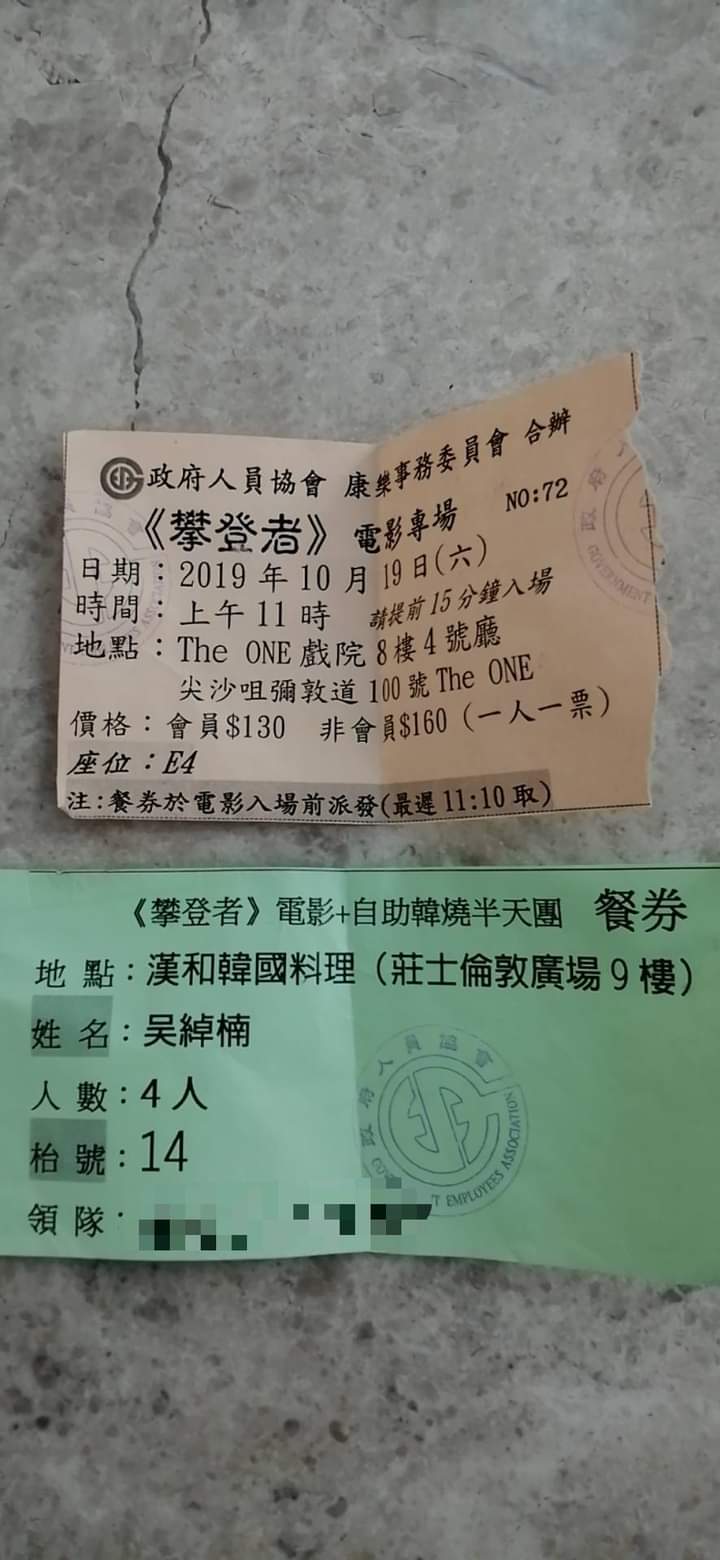 政府人員協會 康樂事務委員會 合辦
《攀登者》電影專場 NO:72
日期：2019 年 10 月 19 日(六)
時間：上午 11 時 請提前 15 分鐘入場
地點：The ONE 戲院 8 樓 4 號廳
尖沙咀彌敦道 100 號 The ONE
價格：會員$130 非會員$160（一人一票）
座位：E4
注:餐券於電影入場前派發(最遲 11:10 取)
《攀登者》電影+自助韓燒半天團 餐券
地 點：漢和韓國料理（莊士倫敦廣場 9 樓）
姓 名：吴綽楠
人 數：4 人
枱 號：14
領 隊：
政府人員協會
EMPLOYEES ASSOCIATION